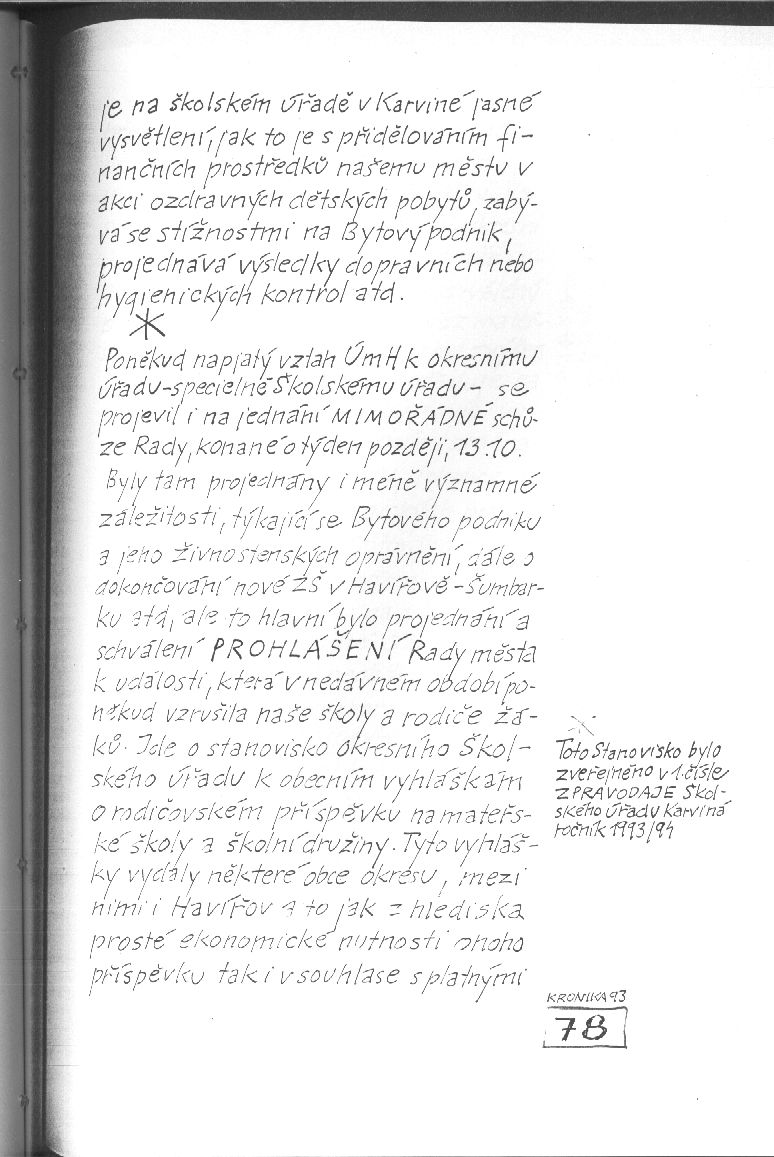 je na školském úřadě v Karviné jasné
vysvětlení, jak to je s přidělováním fi-
nančních prostředků našemu městu v
akci ozdravných dětských pobytů, zabý-
vá se stížnostmi na Bytový podnik,
projednává výsledky dopravních nebo
hygienických kontrol atd.
*
Poněkud napjatý vztah ÚmH k okresnímu
úřadu - specielně Školskému úřadu - se
projevil i na jednání MIMOŘÁDNÉ schů-
ze Rady, konané o týden později, 13.10.
Byly tam projednány i méně významné
záležitosti, týkající se Bytového podniku
a jeho živnostenských oprávnění, dále o
dokončování nové ZŠ v Havířově - Šumbar-
ku atd, ale to hlavní bylo projednání a
schválení PROHLÁŠENÍ Rady města
k události, která v nedávném období po-
někud vzrušila naše školy a rodiče žá-
ků. Jde o stanovisko okresního Škol-
ského úřadu k obecním vyhláškám
o rodičovském příspěvku na mateřs-
ké školy a školní družiny. Tyto vyhláš-
ky vydaly některé obce okresu, mezi
nimi i Havířov a to jak z hlediska
prosté ekonomické nutnosti onoho
příspěvku tak i v souhlase s platnými
*
Toto Stanovisko bylo
zveřejněno v 1. čísle
ZPRAVODAJE Škol-
ského úřadu Karviná
ročník 1993/94
KRONIKA 93
78